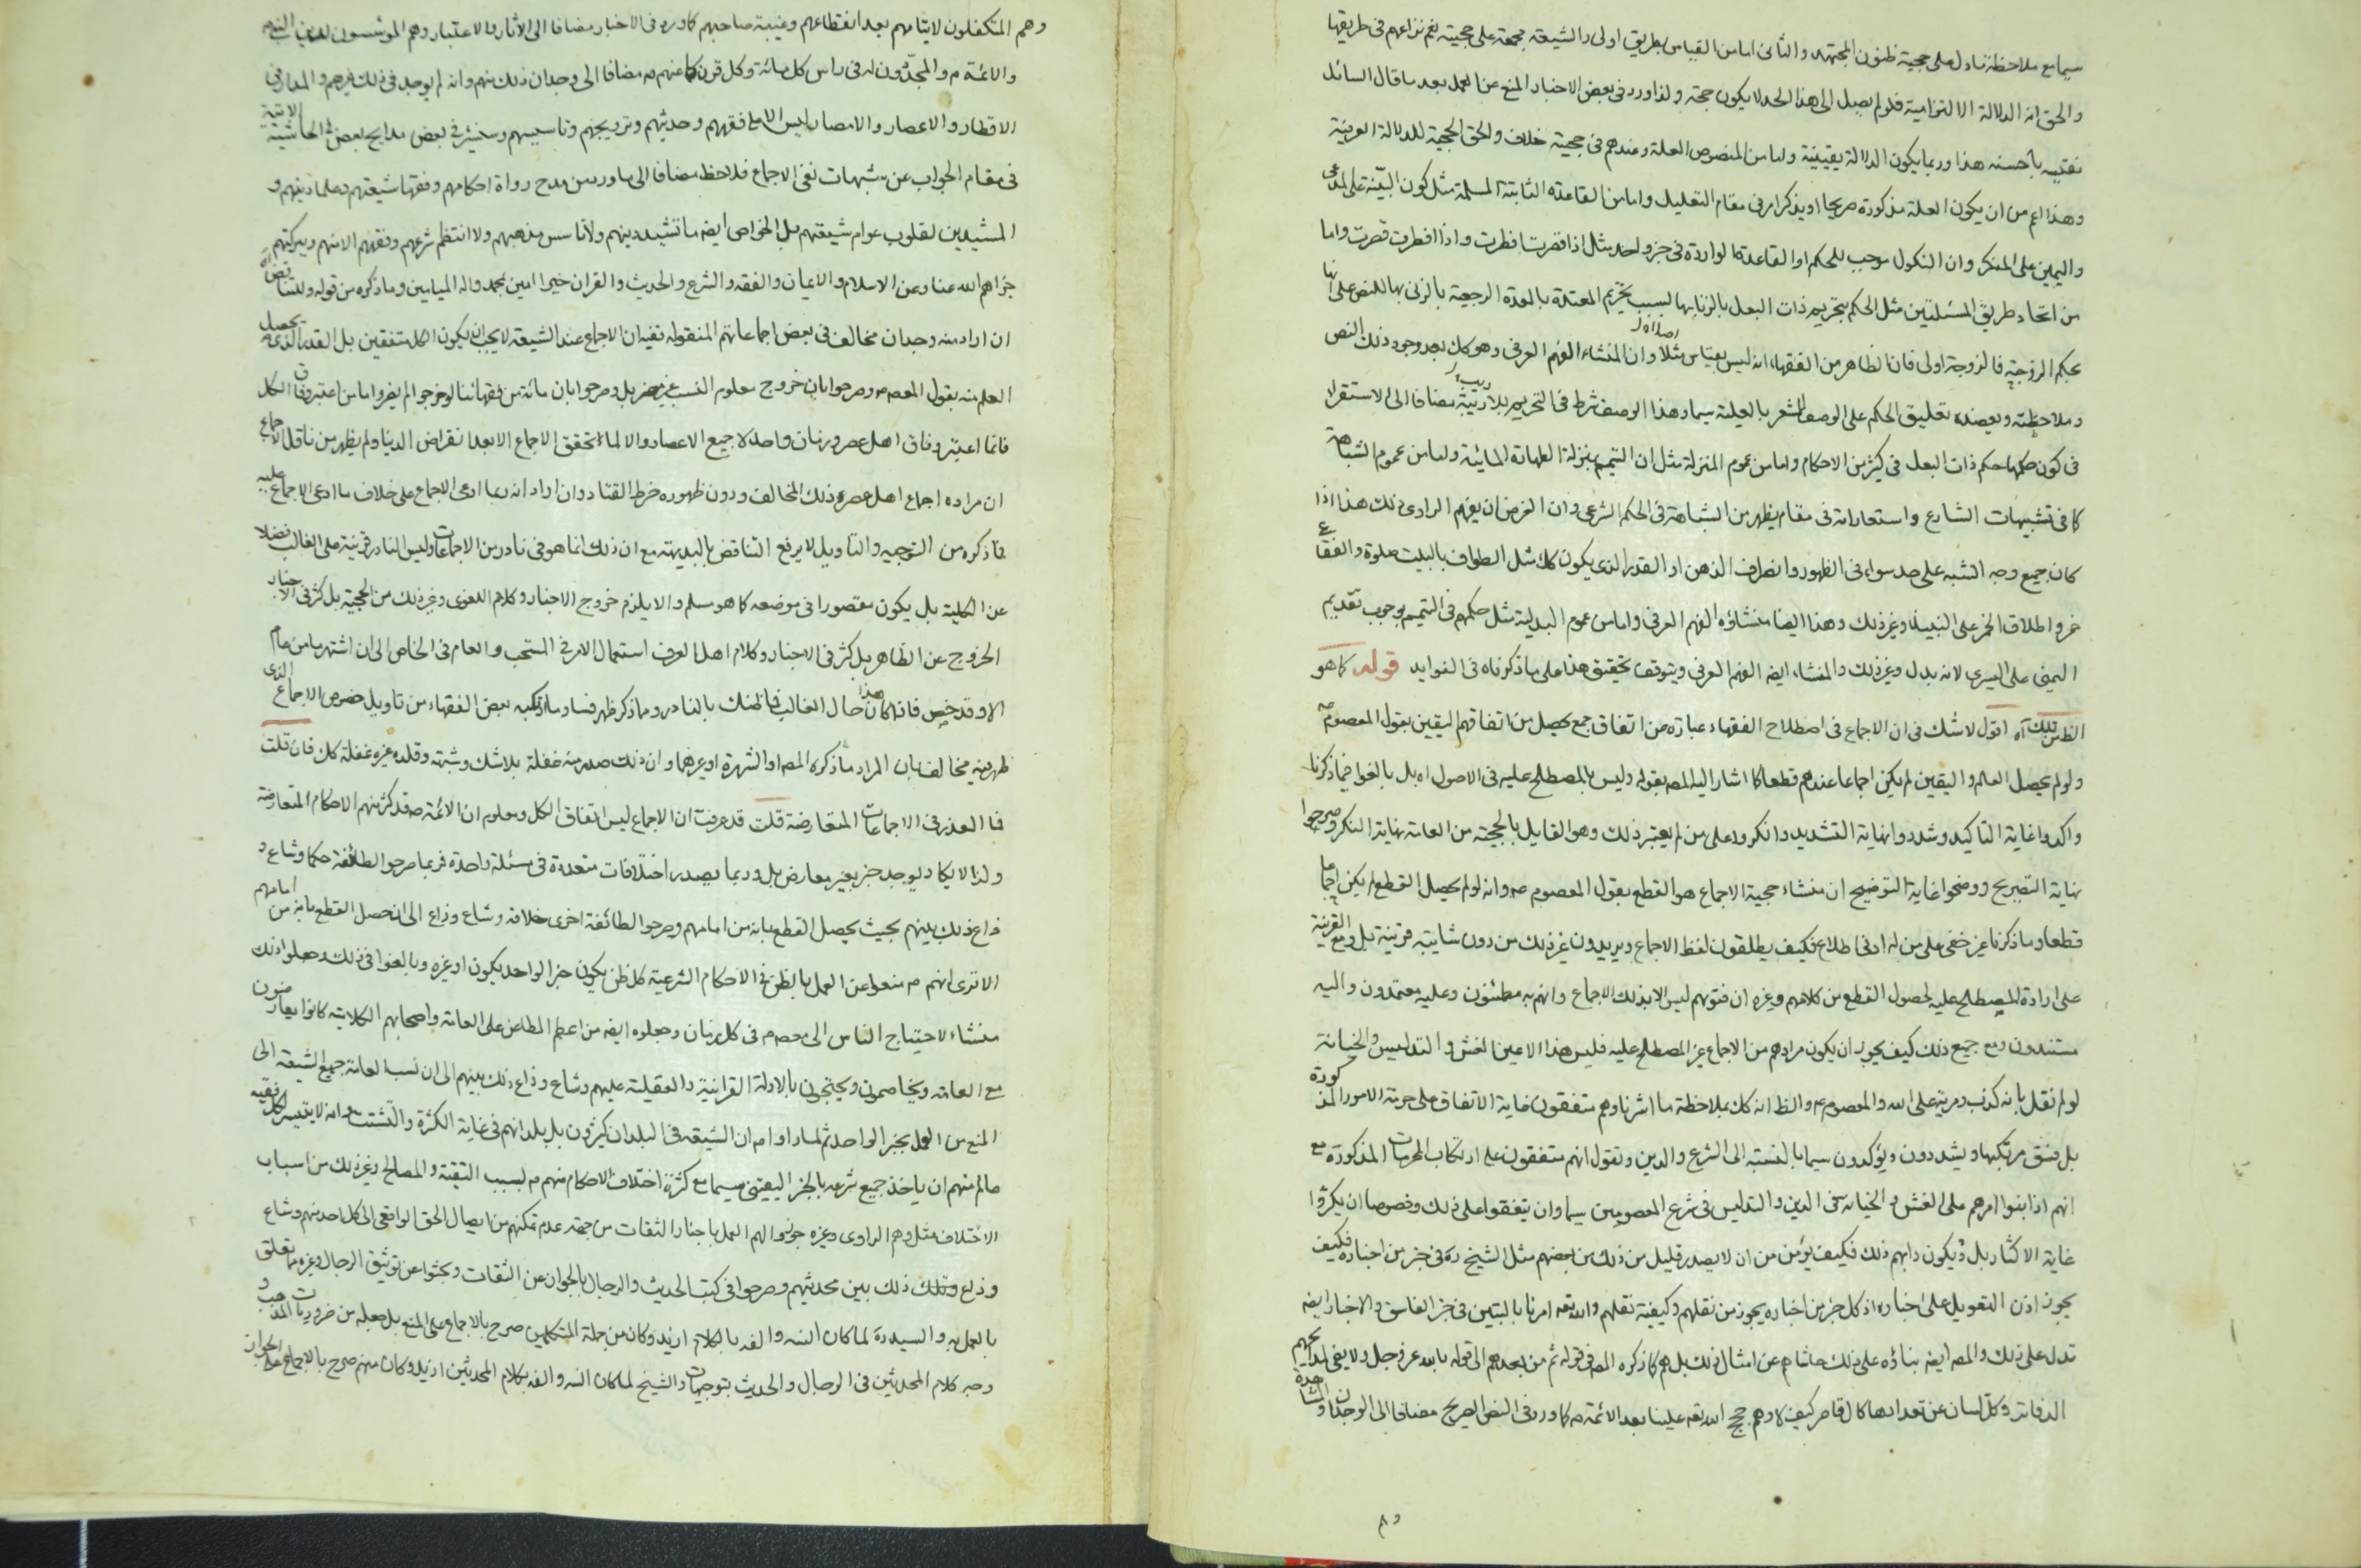 سيما مع ملاحظة ما دل على حجية ظنون المجتهد والثاني اما من القياس بطريق اولى والشيعة مجمعة على حجيته نعم نزاعهم في طريقها
والحق انه الدلالة الالتزامية فلو لم يصل الى هذا الحد لا يكون حجة ولذا ورد في بعض الاخبار المنع عن العمل بعد ما قال السائل
نقيسه بأحسنه هذا وربما يكون الدلالة يقينية واما من المنصوص العلة وعندهم في حجيته خلاف والحق الحجية للدلالة العرفية
وهذا اعم من ان يكون العلة مذكورة صريحا او يذكر امر في مقام التعليل واما من القاعدة الثابتة المسلمة مثل كون البينة على المدعى
واليمين على المنكر وان النكول موجب للحكم او القاعدة الواردة في جزو احد مثل اذا قصرت افطرت واذا افطرت قصرت واما
من اتحاد طريق المسئلتين مثل الحكم بتحريم ذات البعل بالزنا بها لسبب تحريم المعتدة بالعدة الرجعية بالزنى بها للنص على انها
بحكم الزوجة فالزوجة اولى فان الظاهر من الفقهاء انه ليس بقياس مثلا وان المنشاء الفهم العرفي وهو كك بعد وجود ذلك النص
وملاحظته ويعضده تعليق الحكم على الوصف المشعر بالعلية سيما وهذا الوصف شرط في التحريم بلا ريبة مضافا الى الاستقراء
في كون حكمها حكم ذات البعل في كثير من الاحكام واما من عموم المنزلة مثل ان التيمم بمنزلة الطهارة المائية واما من عموم الشباهة
كما في تشبيهات الشارع واستعاراته في مقام يظهر من الشباهة في الحكم الشرعي وان الغرض ان يفهم الراوى ذلك هذا اذا
كان جميع وجه الشبه على حد سواء في الظهور وانصراف الذهن او القدر الذى يكون كك مثل الطواف بالبيت صلوة والفقاع
خمر واطلاق الخمر على النبيذ وغير ذلك وهذا ايضا منشاؤه الفهم العرفي واما من عموم البدلية مثل حكمهم في التيمم بوجوب تقديم
اليمنى على اليسرى لانه بدل وغير ذلك والمنشاء ايضه الفهم العرفي ويتوقف تحقيق هذا على ما ذكرناه في الفوايد قوله كما هو
الظ من تلك آه اقول لا شك في ان الاجماع في اصطلاح الفقهاء عبارة من اتفاق جمع يحصل من اتفاقهم اليقين بقول المعصوم
ولو لم يحصل العلم واليقين لم يكن اجماعا عندهم قطعا كما اشار اليه المص بقوله وليس بالمصطلح عليه في الاصول اه بل بالغوا فيما ذكرنا
واكدوا غاية التاكيد وشددوا نهاية التشديد وانكروا على من لم يعتبر ذلك وهو القايل بالحجية من العامة نهاية النكر وصرحوا
نهاية التصريح ووضحوا غاية التوضيح ان منشاء حجية الاجماع هو القطع بقول المعصوم ع وانه لو لم يحصل القطع لم يكن اجماعا
قطعا وما ذكرنا غير خفى على من له ادنى اطلاع فكيف يطلقون لفظ الاجماع ويريدون غير ذلك من دون شايبة قرينة بل ومع القرينة
على ارادة المصطلح عليه لحصول القطع من كلامهم وغيره ان فتويهم ليس الا بذلك الاجماع وانهم به مطمئنون وعليه معتمدون واليه
مستندون ومع جميع ذلك كيف يجوز ان يكون مرادهم من الاجماع غير المصطلح عليه فليس هذا الا عين الغش والتدليس والخيانة
لو لم نقل بانه كذب وفرية على الله والمعصوم ع والظ انه كك بملاحظة ما اشرنا وهم متفقون غاية الاتفاق على حرمة الامور المذكورة
بل فسق مرتكبها ويشددون ويؤكدون سيما بالنسبة الى الشرع والدين ونقول انهم متفقون على ارتكاب المحرمات المذكورة مع
انهم اذا بنوا امرهم على الغش والخيانة في الدين والتدليس في شرع المعصومين سيما وان يتفقوا على ذلك وخصوصا ان يكثروا
غاية الاكثار بل ويكون دابهم ذلك فكيف يؤمن من ان لا يصدر قليل من ذلك من بعضهم مثل الشيخ ره في خبر من اخباره فكيف
يجوز اذن التعويل على اخباره اذ كل خبر من اخباره يجوز من نقلهم وكيفية نقلهم والله تعه امرنا بالتبين في خبر الفاسق والاخبار ايضه
تدل على ذلك والمص ايضه بناؤه على ذلك حاشاهم عن امثال ذلك بل هم كما ذكره المص في قوله ثم من بعدهم الى قوله بالله عز وجل ولا يفى لمدايحهم
الدفاتر وكل لسان عن تعدادها كال قاصر كيف لا وهم حجج الله تعه علينا بعد الائمة ع كما ورد في النص الصريح مضافا الى الوجدان والمشاهدة
وهم
وهم المتكفلون لايتامهم بعد انقطاعهم وغيبة صاحبهم كما ورد في الاخبار مضافا الى الاثار والاعتبار وهم المؤسسون لدين النبى
والائمة ع والمجددون له في راس كل مائة وكل قرن كما عنهم ع مضافا الى وجدان ذلك منهم وانه لم يوجد في ذلك غيرهم والمدار في
الاقطار والاعصار والامصار ليس الا على فقههم وحديثهم وترويجهم وتاسيسهم وسنشير في بعض مدايح بعض في الحاشية الاتية
في مقام الجواب عن شبهات نفى الاجماع فلاحظ مضافا الى ما ورد من مدح رواة احكامهم وفقهاء شيعتهم وعلماء دينهم و
المشيدين لقلوب عوام شيعتهم بل الخواص ايضه ما تشيد دينهم ولا تاسس مذهبهم ولا انتظم شرعهم وفقههم الا منهم وببركتهم
جزاهم الله عنا وعن الاسلام والايمان والفقه والشرع والحديث والقران خيرا امين بمحمد واله الميامين وما ذكره من قوله ولتناقض اه
ان اراد منه وجدان مخالف في بعض اجماعاتهم المنقولة نفيه ان الاجماع عند الشيعة لا يجب ان يكون الكل متفقين بل القدر الذى يحصل
العلم منه بقول المعصوم وصرحوا بان خروج معلوم النسب غير مضر بل وصرحوا بان مائة من فقهائنا لو خرجوا لم يضر واما من اعتبر وفاق الكل
فانما اعتبر وفاق اهل عصر وزمان واحد لا جميع الاعصار والا لما تحقق الاجماع الا بعد انقراض الدنيا ولم يظهر من ناقل الاجماع
ان مراده اجماع اهل عصره ذلك المخالف ودون ظهوره خرط القتاد وان اراد انه ربما ادعى الاجماع على خلاف ما ادعى الاجماع عليه
فما ذكره من التوجيه والتاويل لا يرفع التناقض بالبديهة مع ان ذلك انما هو في نادر من الاجماعات وليس النادر قرينة على الغالب فضلا
عن الكلية بل يكون مقصورا في موضعه كما هو مسلم والا يلزم خروج الاخبار وكلام اللغوى وغير ذلك من الحجية بل كثر في الاخبار
الخروج عن الظاهر بل كثر في الاخبار وكلام اهل العرف استعمال الامر في المستحب والعام في الخاص الى ان اشتهر ما من عام
الا وقد خص فاذا كان هذا حال الغالب فما ظنك بالنادر وما ذكر ظهر فساد ما ارتكبه بعض الفقهاء من تاويل خصوص الاجماع الذى
ظهر فيه مخالف بان المراد ما ذكره المص او الشهرة او غيرهما وان ذلك صدر منه غفلة بلا شك وشبهة وقلده غيره غفلة كك فان قلت
فما العذر في الاجماعات المتعارضة قلت قد عرفت ان الاجماع ليس اتفاق الكل ومعلوم ان الائمة ع قد كثر منهم الاحكام المتعارضة
ولذا لا يكاد يوجد خبر بغير معارض بل وربما يصدر اختلافات متعددة في مسئلة واحدة فربما صرحوا لطائفة حكما وشاع و
ذاع ذلك بينهم بحيث يحصل القطع بانه من امامهم وصرحوا لطائفة اخرى خلافه وشاع وذاع الى ان حصل القطع بانه من امامهم
الا ترى انهم ع منعوا عن العمل بالظن في الاحكام الشرعية كل ظن يكون خبر الواحد يكون او غيره وبالغوا في ذلك وجعلوا ذلك
منشاء لاحتياج الناس الى معصوم في كل زمان وجعلوه ايضه من اعظم المطاعن على العامة واصحابهم الكلامية كانوا يعارضون
مع العامة ويخاصمون ويحتجون بالادلة القرانية والعقلية عليهم وشاع وذاع ذلك بينهم الى ان نسب العامة جميع الشيعة الى
المنع من العمل بخبر الواحد ثم لما راوا ع ان الشيعة في البلدان كثيرون بل بلدانهم في غاية الكثرة والتشتت وانه لا يتيسر لكل فقيه
عالم منهم ان ياخذ جميع شرعه بالخبر اليقينى سيما مع كثرة اختلاف الاحكام منهم ع بسبب التقية والمصالح وغير ذلك من اسباب
الاختلاف مثل وهم الراوى وغيره جوزوا لهم العمل باخبار الثقات من جهة عدم تمكنهم من ايصال الحق الواقعى الى كل احد منهم وشاع
وذاع ذلك بين محدثيهم وصرحوا في كتب الحديث والرجال بالجواز عن الثقات وبحثوا عن توثيق الرجال وغيره مما يتعلق
بالعمل به والسيد ره لما كان انسه والفه بالكلام ازيد وكان من جملة المتكلمين صرح بالاجماع على المنع بل جعله من ضروريات المذهب و
وجه كلام المحدثين في الرجال والحديث بتوجيهات والشيخ لما كان انسه والفه بكلام المحدثين ازيد وكان منهم صرح بالاجماع على الجواز